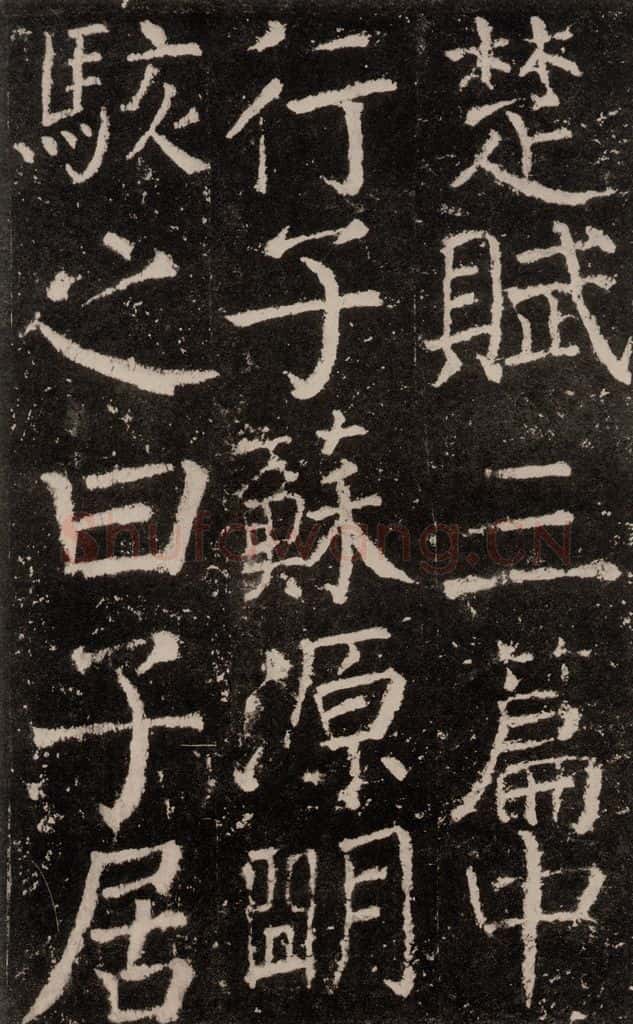 楚賦三篇中
行子蘇源明
駭之曰子居
shufawang.CN